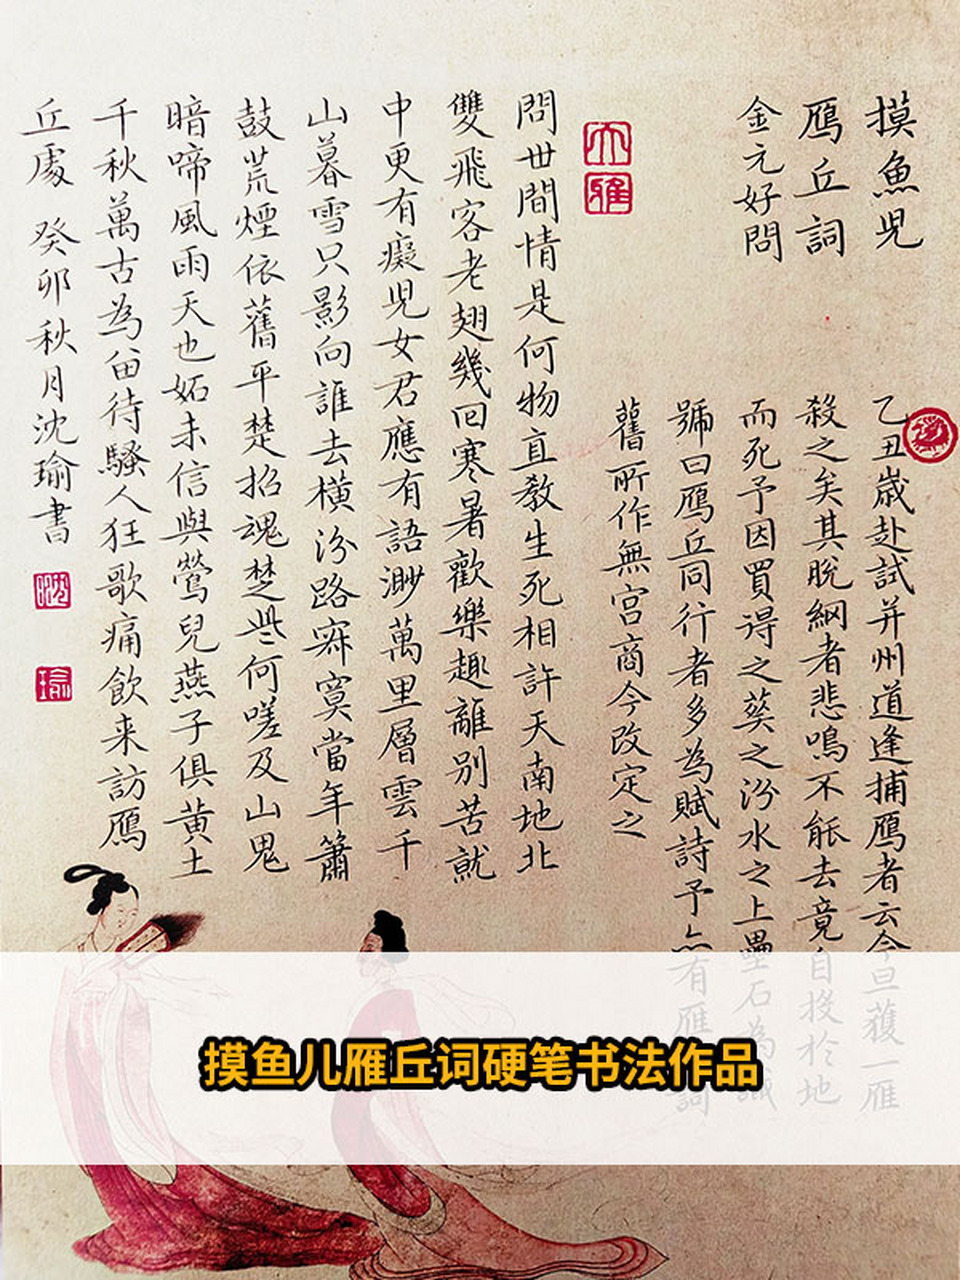 摸魚児
鴈丘詞
金元好問
乙丑歲赴試并州道逢捕鴈者云今旦獲一雁
殺之矣其脫網者悲鳴不能去竟自投於地
而死予因買得之葬之汾水之上壘石為識
號曰鴈丘同行者多為賦詩予亦有雁丘詞
舊所作無宮商今改定之
大雅
問世間情是何物直教生死相許天南地北
雙飛客老翅幾回寒暑歡樂趣離別苦就
中更有癡児女君應有語渺萬里層雲千
山暮雪只影向誰去橫汾路寂寞當年簫
鼓荒煙依舊平楚招魂楚些何嗟及山鬼
暗啼風雨天也妬未信與鶯兒燕子俱黃土
千秋萬古為留待騷人狂歌痛飲来訪鴈
丘處 癸卯秋月沈瑜書
瑜
摸鱼儿雁丘词硬笔书法作品